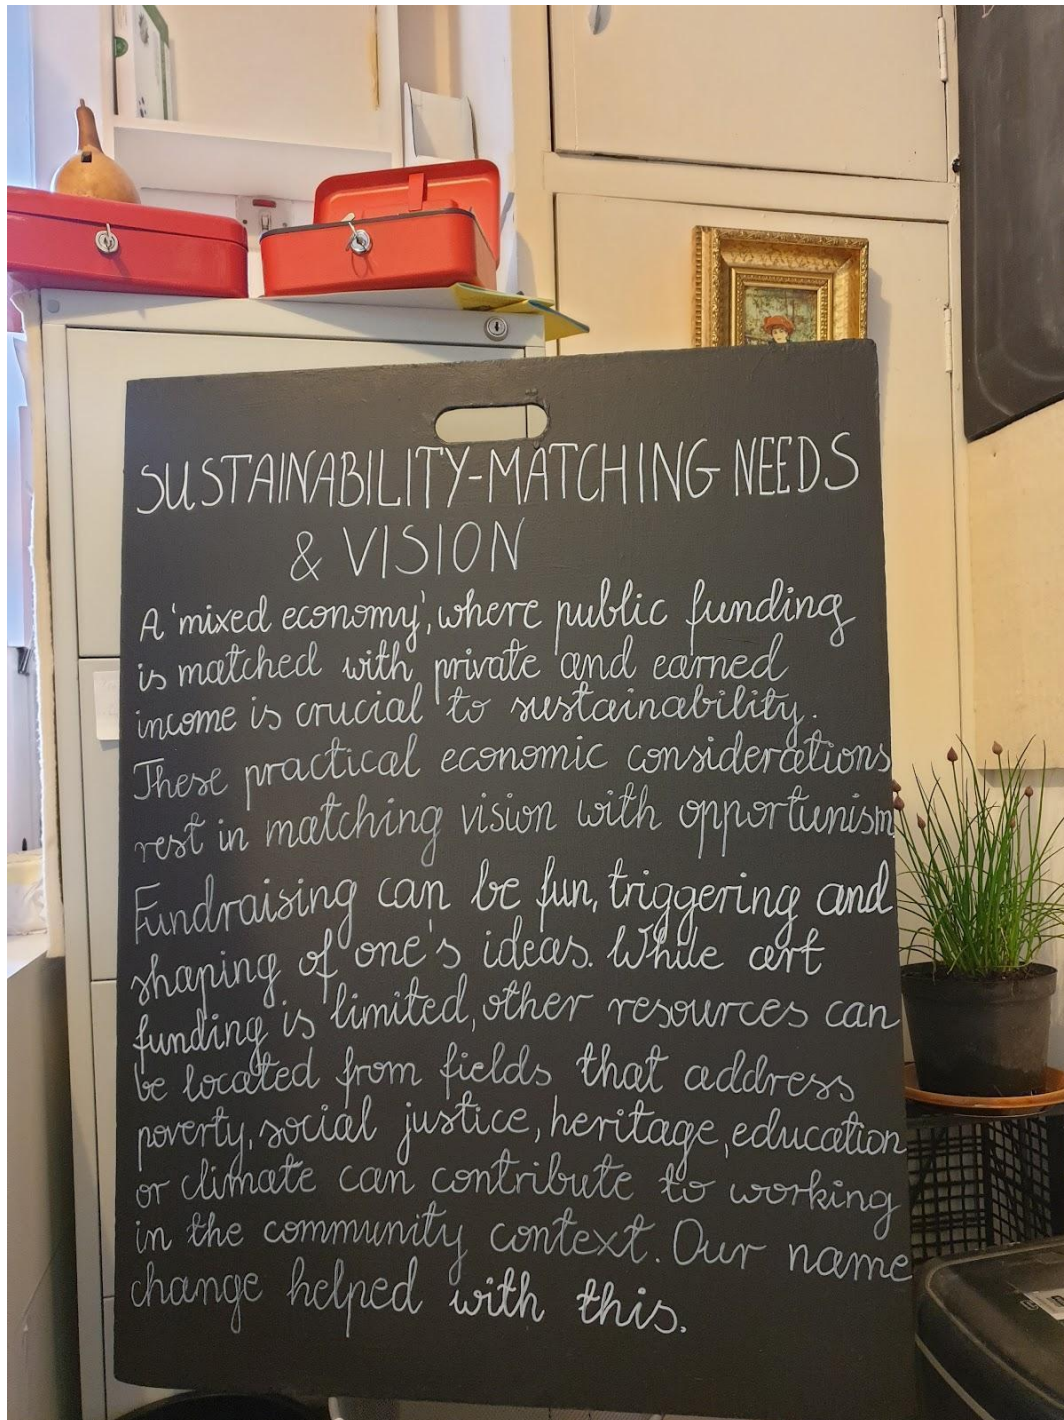 SUSTAINABILITY-MATCHING NEEDS
& VISION
A 'mixed economy', where public funding
is matched with private and earned
income is crucial to sustainability.
These practical economic considerations
rest in matching vision with opportunism
Fundraising can be fun, triggering and
shaping of one's ideas. While art
funding is limited, other resources can
be located from fields that address
poverty, social justice, heritage, education
or climate can contribute to working
in the community context. Our name
change helped with this.